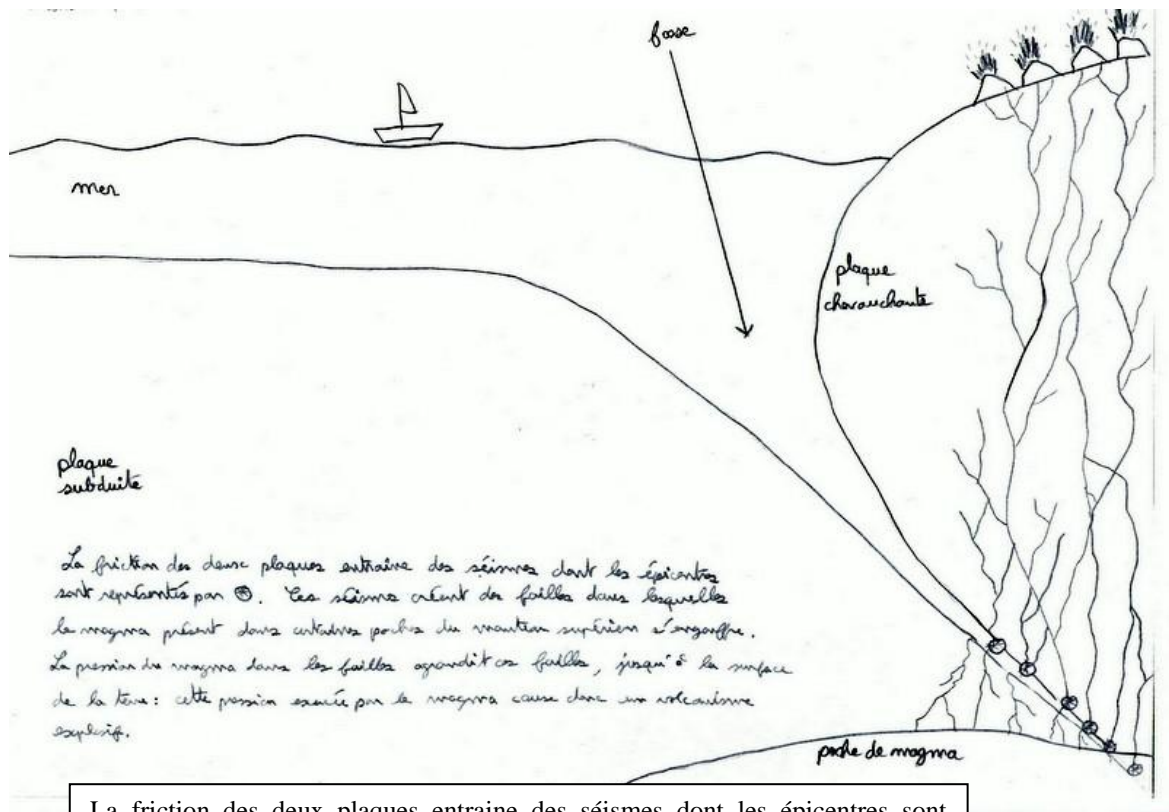 fosse
mer
plaque
chevauchante
plaque
subduite
La friction des deux plaques entraine des séismes dont les épicentres
sont représentés par ⊗. Ces séismes créent des failles dans lesquelles
le magma présent dans certaines poches du manteau supérieur s'engouffre.
La pression du magma dans les failles agrandit ces failles, jusqu'à la surface
de la terre : cette pression exercée par le magma cause donc un volcanisme
explosif.
poche de magma
La friction des deux plaques entraine des séismes dont les épicentres sont